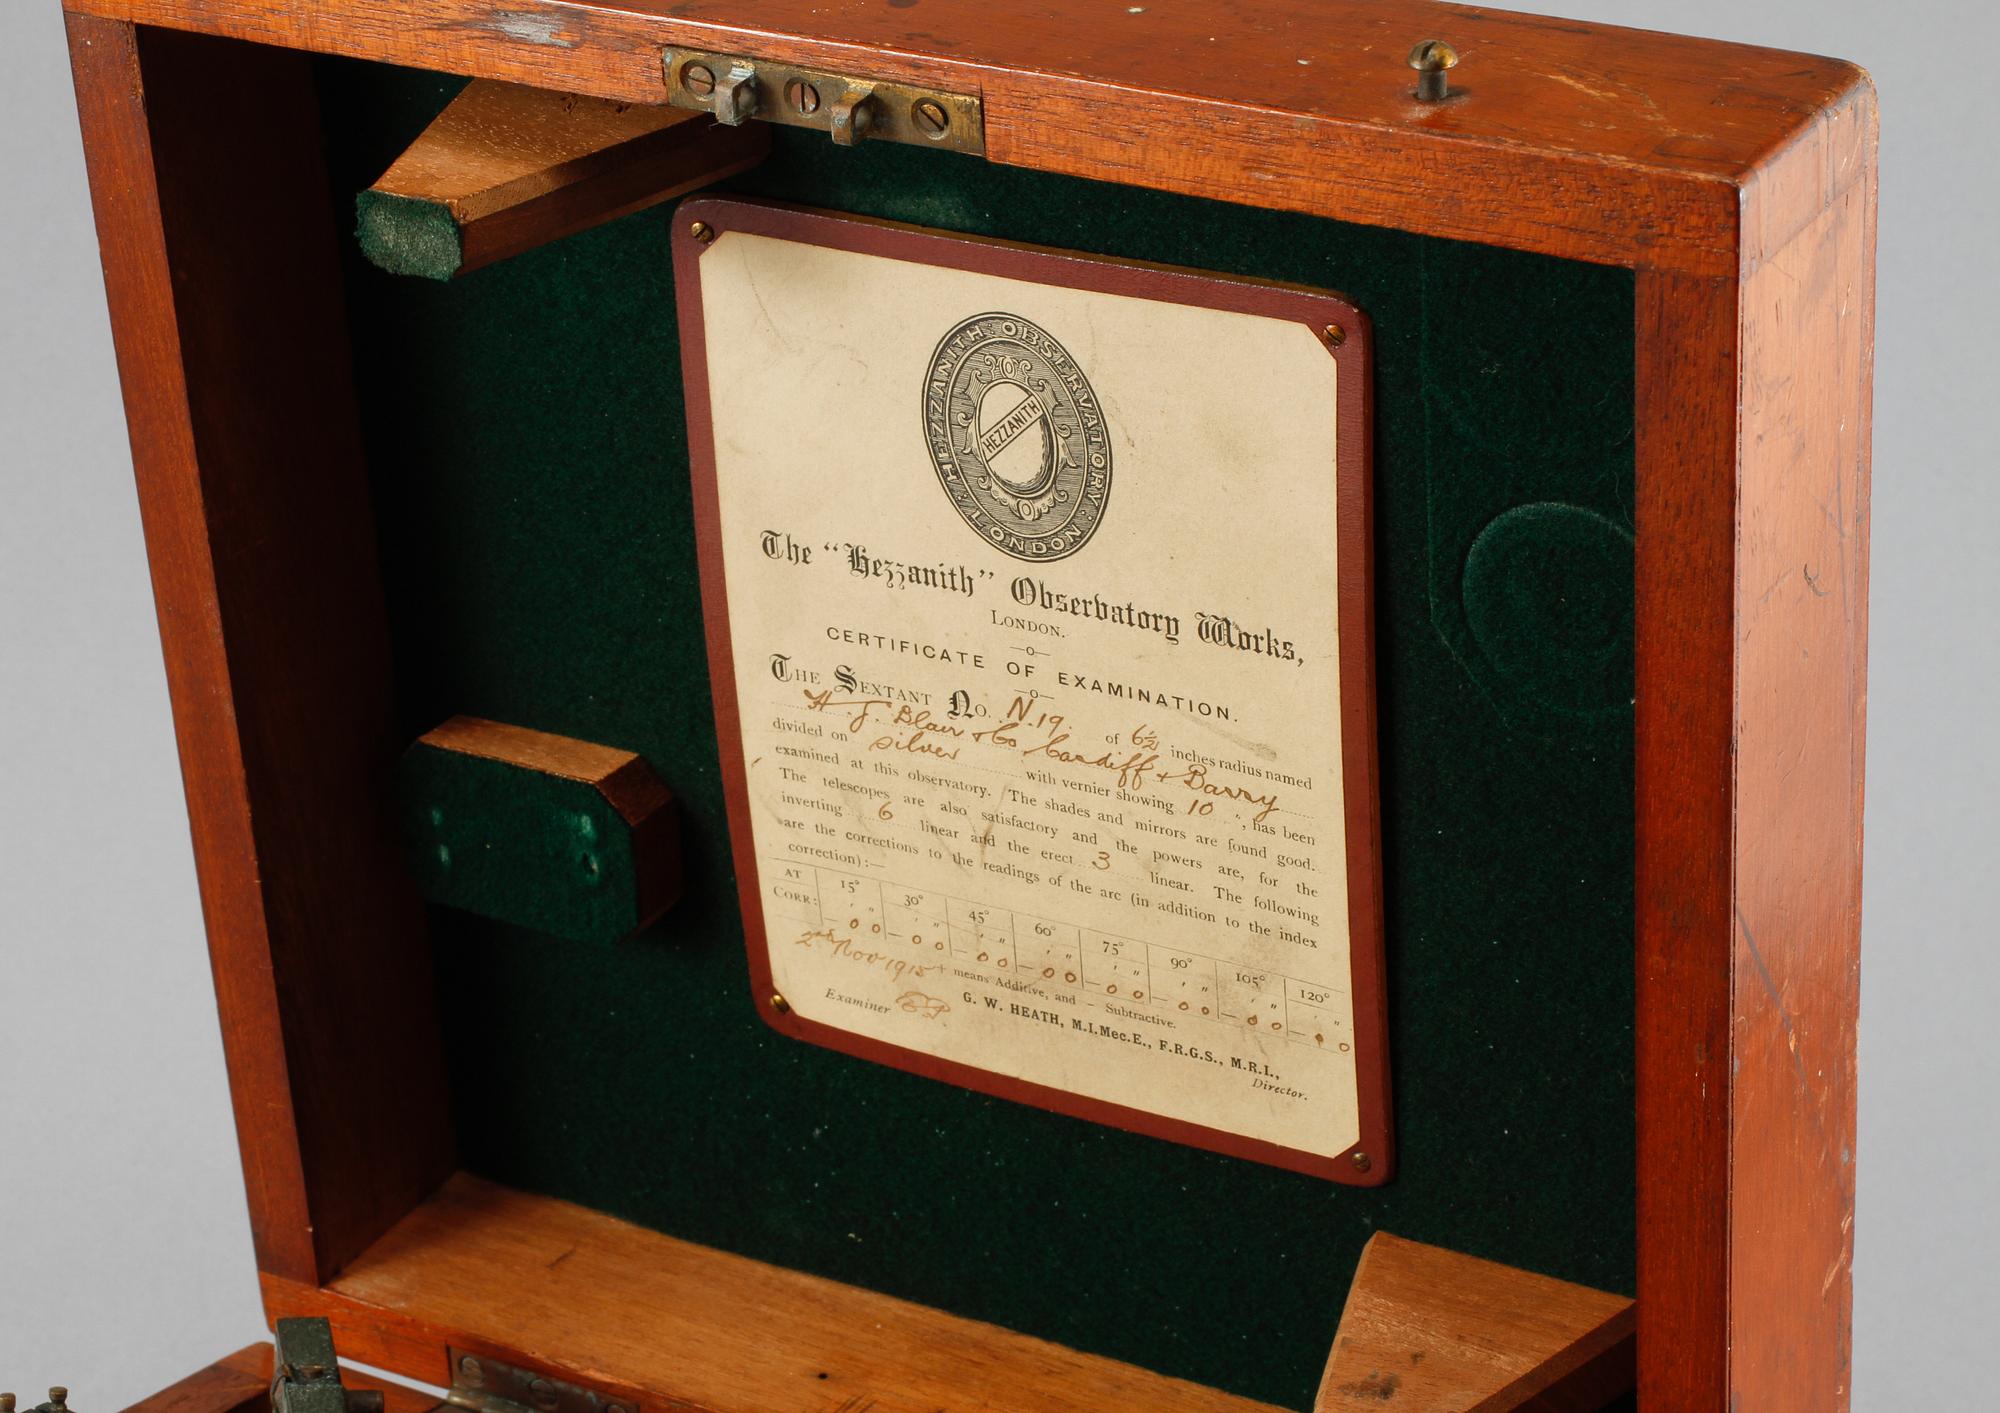 HEZZANITH : OBSERVATORY : LONDON :
HEZZANITH
The "Hezzanith" Observatory Works,
LONDON.
—o—
CERTIFICATE OF EXAMINATION.
—o—
THE SEXTANT No. N.19. of 6½ inches radius named
H. J. Blair & Co Cardiff & Barry
divided on silver with vernier showing 10 ", has been
examined at this observatory. The shades and mirrors are found good.
The telescopes are also satisfactory and the powers are, for the
inverting 6 linear and the erect 3 linear. The following
are the corrections to the readings of the arc (in addition to the index
correction):—
AT 15° 30° 45° 60° 75° 90° 105° 120°
CORR: ' " ' " ' " ' " ' " ' " ' " ' "
— 0 0 — 0 0 — 0 0 — 0 0 — 0 0 — 0 0 — 0 0 — 0 0
2nd Nov 1915 + means Additive, and – Subtractive.
Examiner
G. W. HEATH, M.I.Mec.E., F.R.G.S., M.R.I.,
Director.